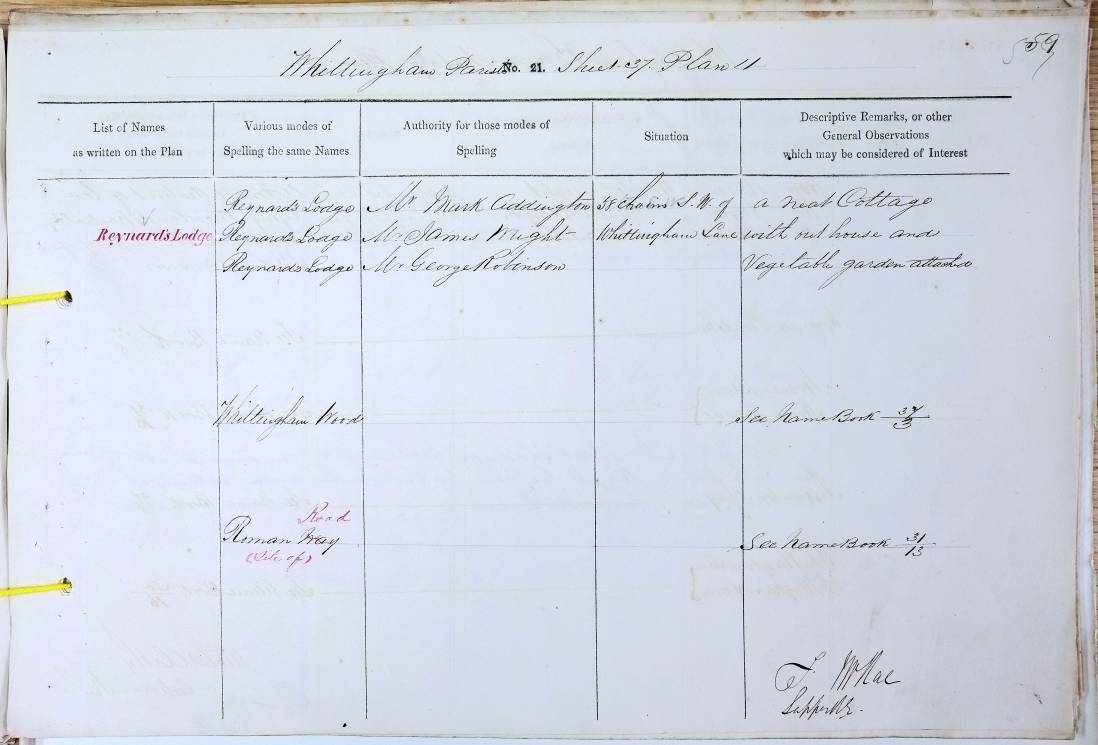 59
Whittingham Parish No. 21. Sheet 37. Plan 11
List of Names
as written on the Plan
Various modes of
Spelling the same Names
Authority for those modes of
Spelling
Situation
Descriptive Remarks, or other
General Observations
which may be considered of Interest
Reynard's Lodge Mr. Mark Addington 38 chains S.W. of a neat Cottage
Reynard's Lodge Reynard's Lodge Mr. James Wright Whittingham Lane with out house and
Reynard's Lodge Mr. George Robinson Vegetable garden attached
Whittingham Wood See Name Book 37/3
Road
Roman Way See Name Book 31/13
(Site of)
F. McRae
Sapper R.E.